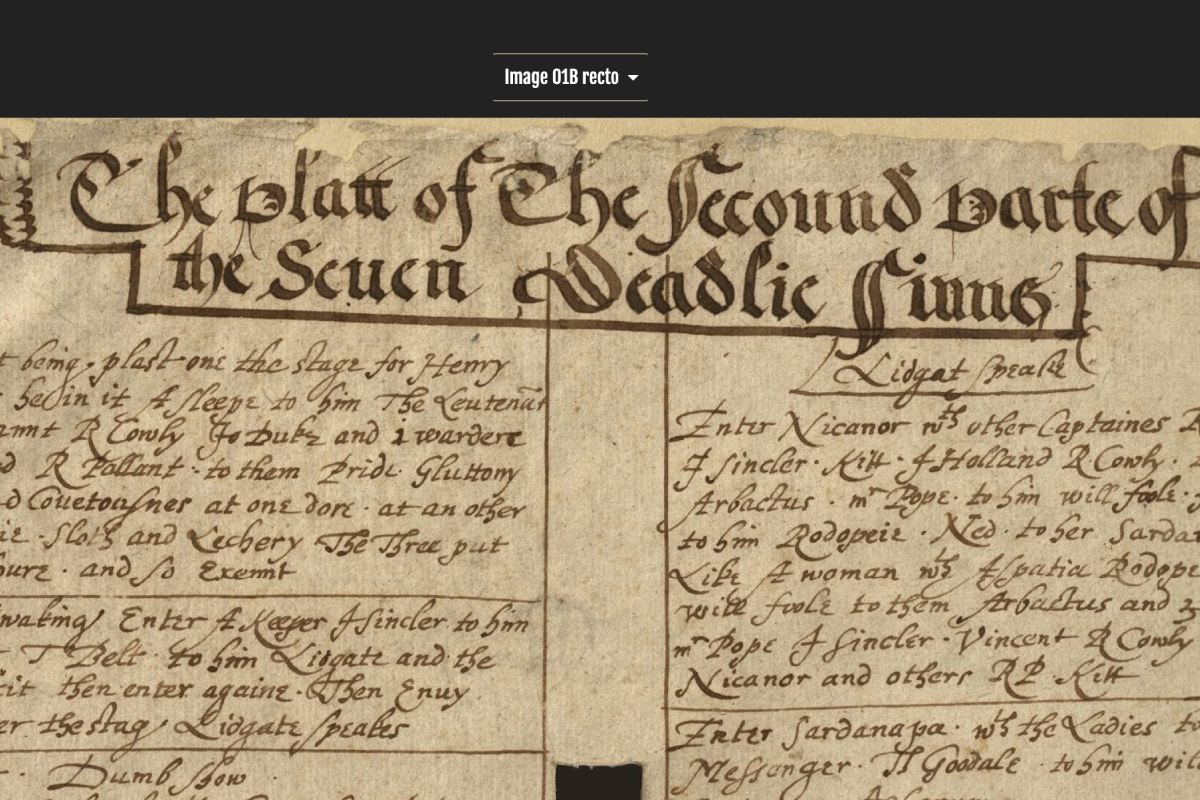 Image 01B recto
The platt of The Secound parte of
the Seuen Deadlie Sinns
being plast one the stage for Henry
he in it A sleepe to him The Leutenāt
R Cowly Jo Duke and 1 wardere
R Pallant · to them Pride · Gluttony
Couetousnes at one dore · at an other
Sloth and Lechery The Three put
and so Exeunt
waking Enter A Keeper J sincler to him
T Belt · to him Lidgate and the
then enter againe · Then Envy
the stag Lidgate speakes
Dumb show ·
Lidgat speake
Enter Nicanor wth other Captaines R
J sincler · Kitt · J Holland R Cowly ·
Arbactus · mr Pope · to him will foole ·
to him Rodopeie · Ned · to her
Like A woman wth Aspatia Rodope
will foole to them Arbactus and 3
mr Pope J sincler · Vincent R Cowly
Nicanor and others R P · Kitt
Enter Sardanapa · wth the Ladies to
Messenger · Th Goodale · to him will